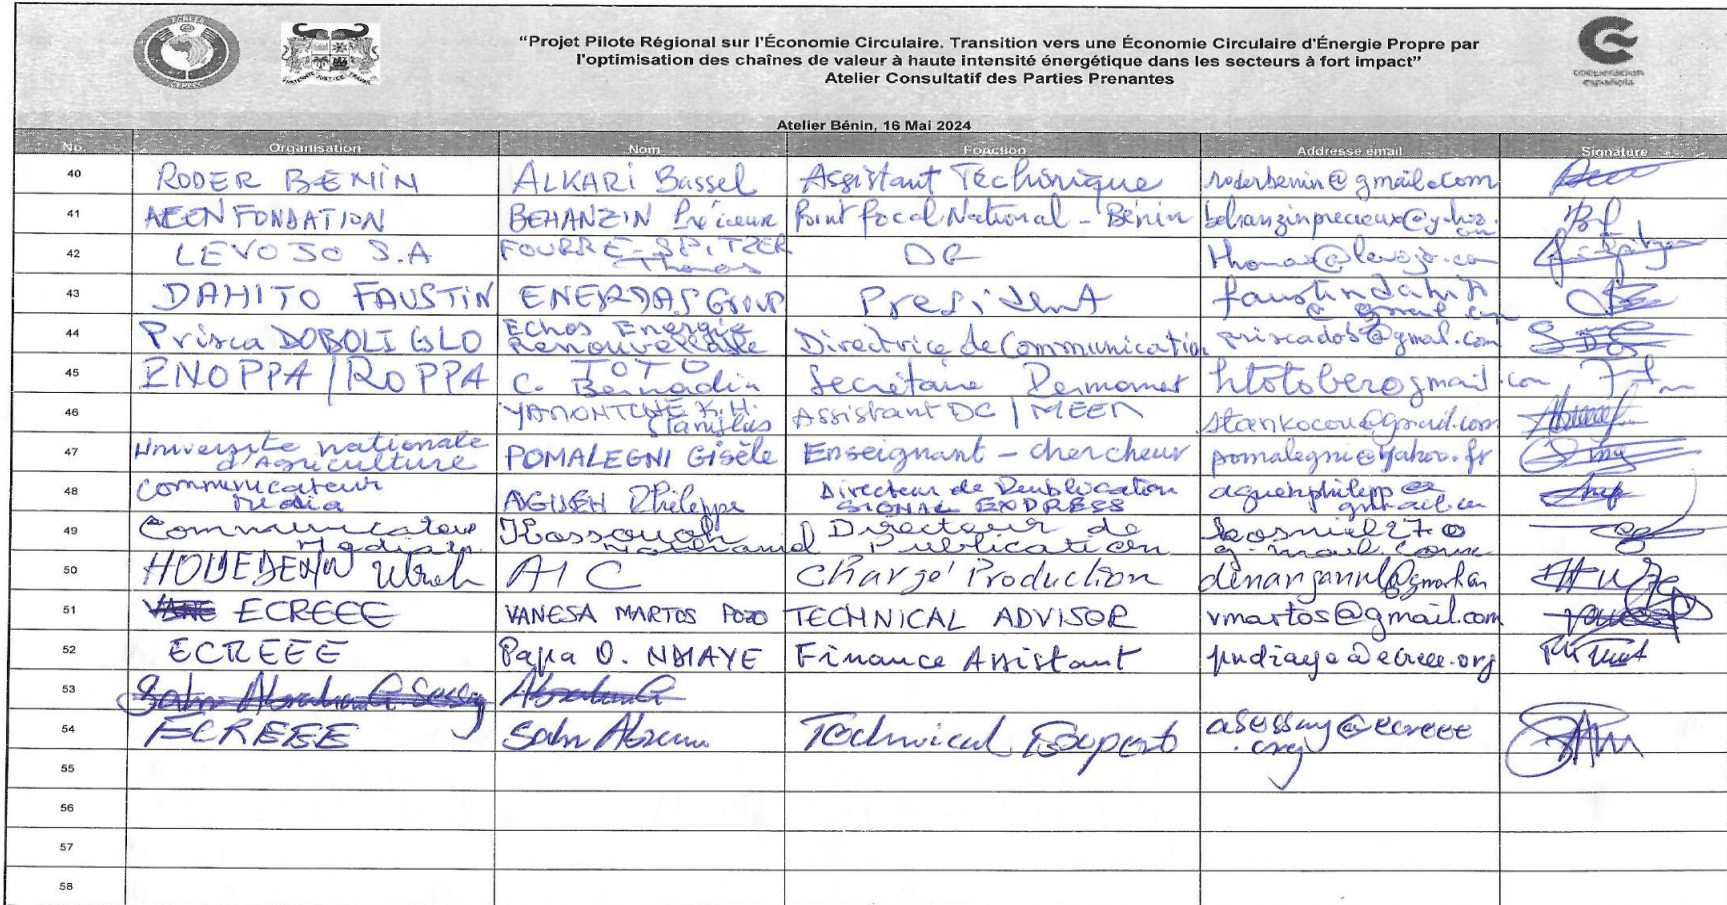 ECREEE
FRATERNITE JUSTICE TRAVAIL
"Projet Pilote Régional sur l'Économie Circulaire. Transition vers une Économie Circulaire d'Énergie Propre par
l'optimisation des chaînes de valeur à haute intensité énergétique dans les secteurs à fort impact"
Atelier Consultatif des Parties Prenantes
cooperación
española
Atelier Bénin, 16 Mai 2024
No. Organisation Nom Fonction Addresse email Signature
40 RODER BENIN ALKARI Bassel Assistant Téchinique roderbenin@gmail.com
41 AEEN FONDATION BEHANZIN Précieux Point focal National - Bénin behanzinprecieux@yahoo.
42 LEVOJO S.A FOURRE-SPITZER
Thomas thomas@levojo.com
43 DAHITO FAUSTIN ENERDAS Group President faustindahito
@gmail.com
44 Prisca DOBOLI GLO Echos Energie
Renouvellable Directrice de Communication priscadob@gmail.com
45 PNOPPA/ROPPA TOTO
C. Bernadin Secrétaire Permanent htotober@gmail.com
46 Stanislas Assistant DC / MEEM
47 Université nationale
d'Agriculture POMALEGNI Gisèle Enseignant-chercheur pomalegni@yahoo.fr
48 Communicateur
Média AGUEH Philippe Directeur de Publication
SIGNAL EXPRESS aguehphilippe@
gmail.com
49 Communicateur
Directeur de
Publication
50 HOUEDENIN Ulrich AIC Chargé Production
51 ECREEE VANESA MARTOS POZO TECHNICAL ADVISOR vmartos@gmail.com
52 ECREEE Papa O. NDIAYE Finance Assistant pndiaye@ecreee.org
53
54 ECREEE Technical Expert
@ecreee
.org
55
56
57
58